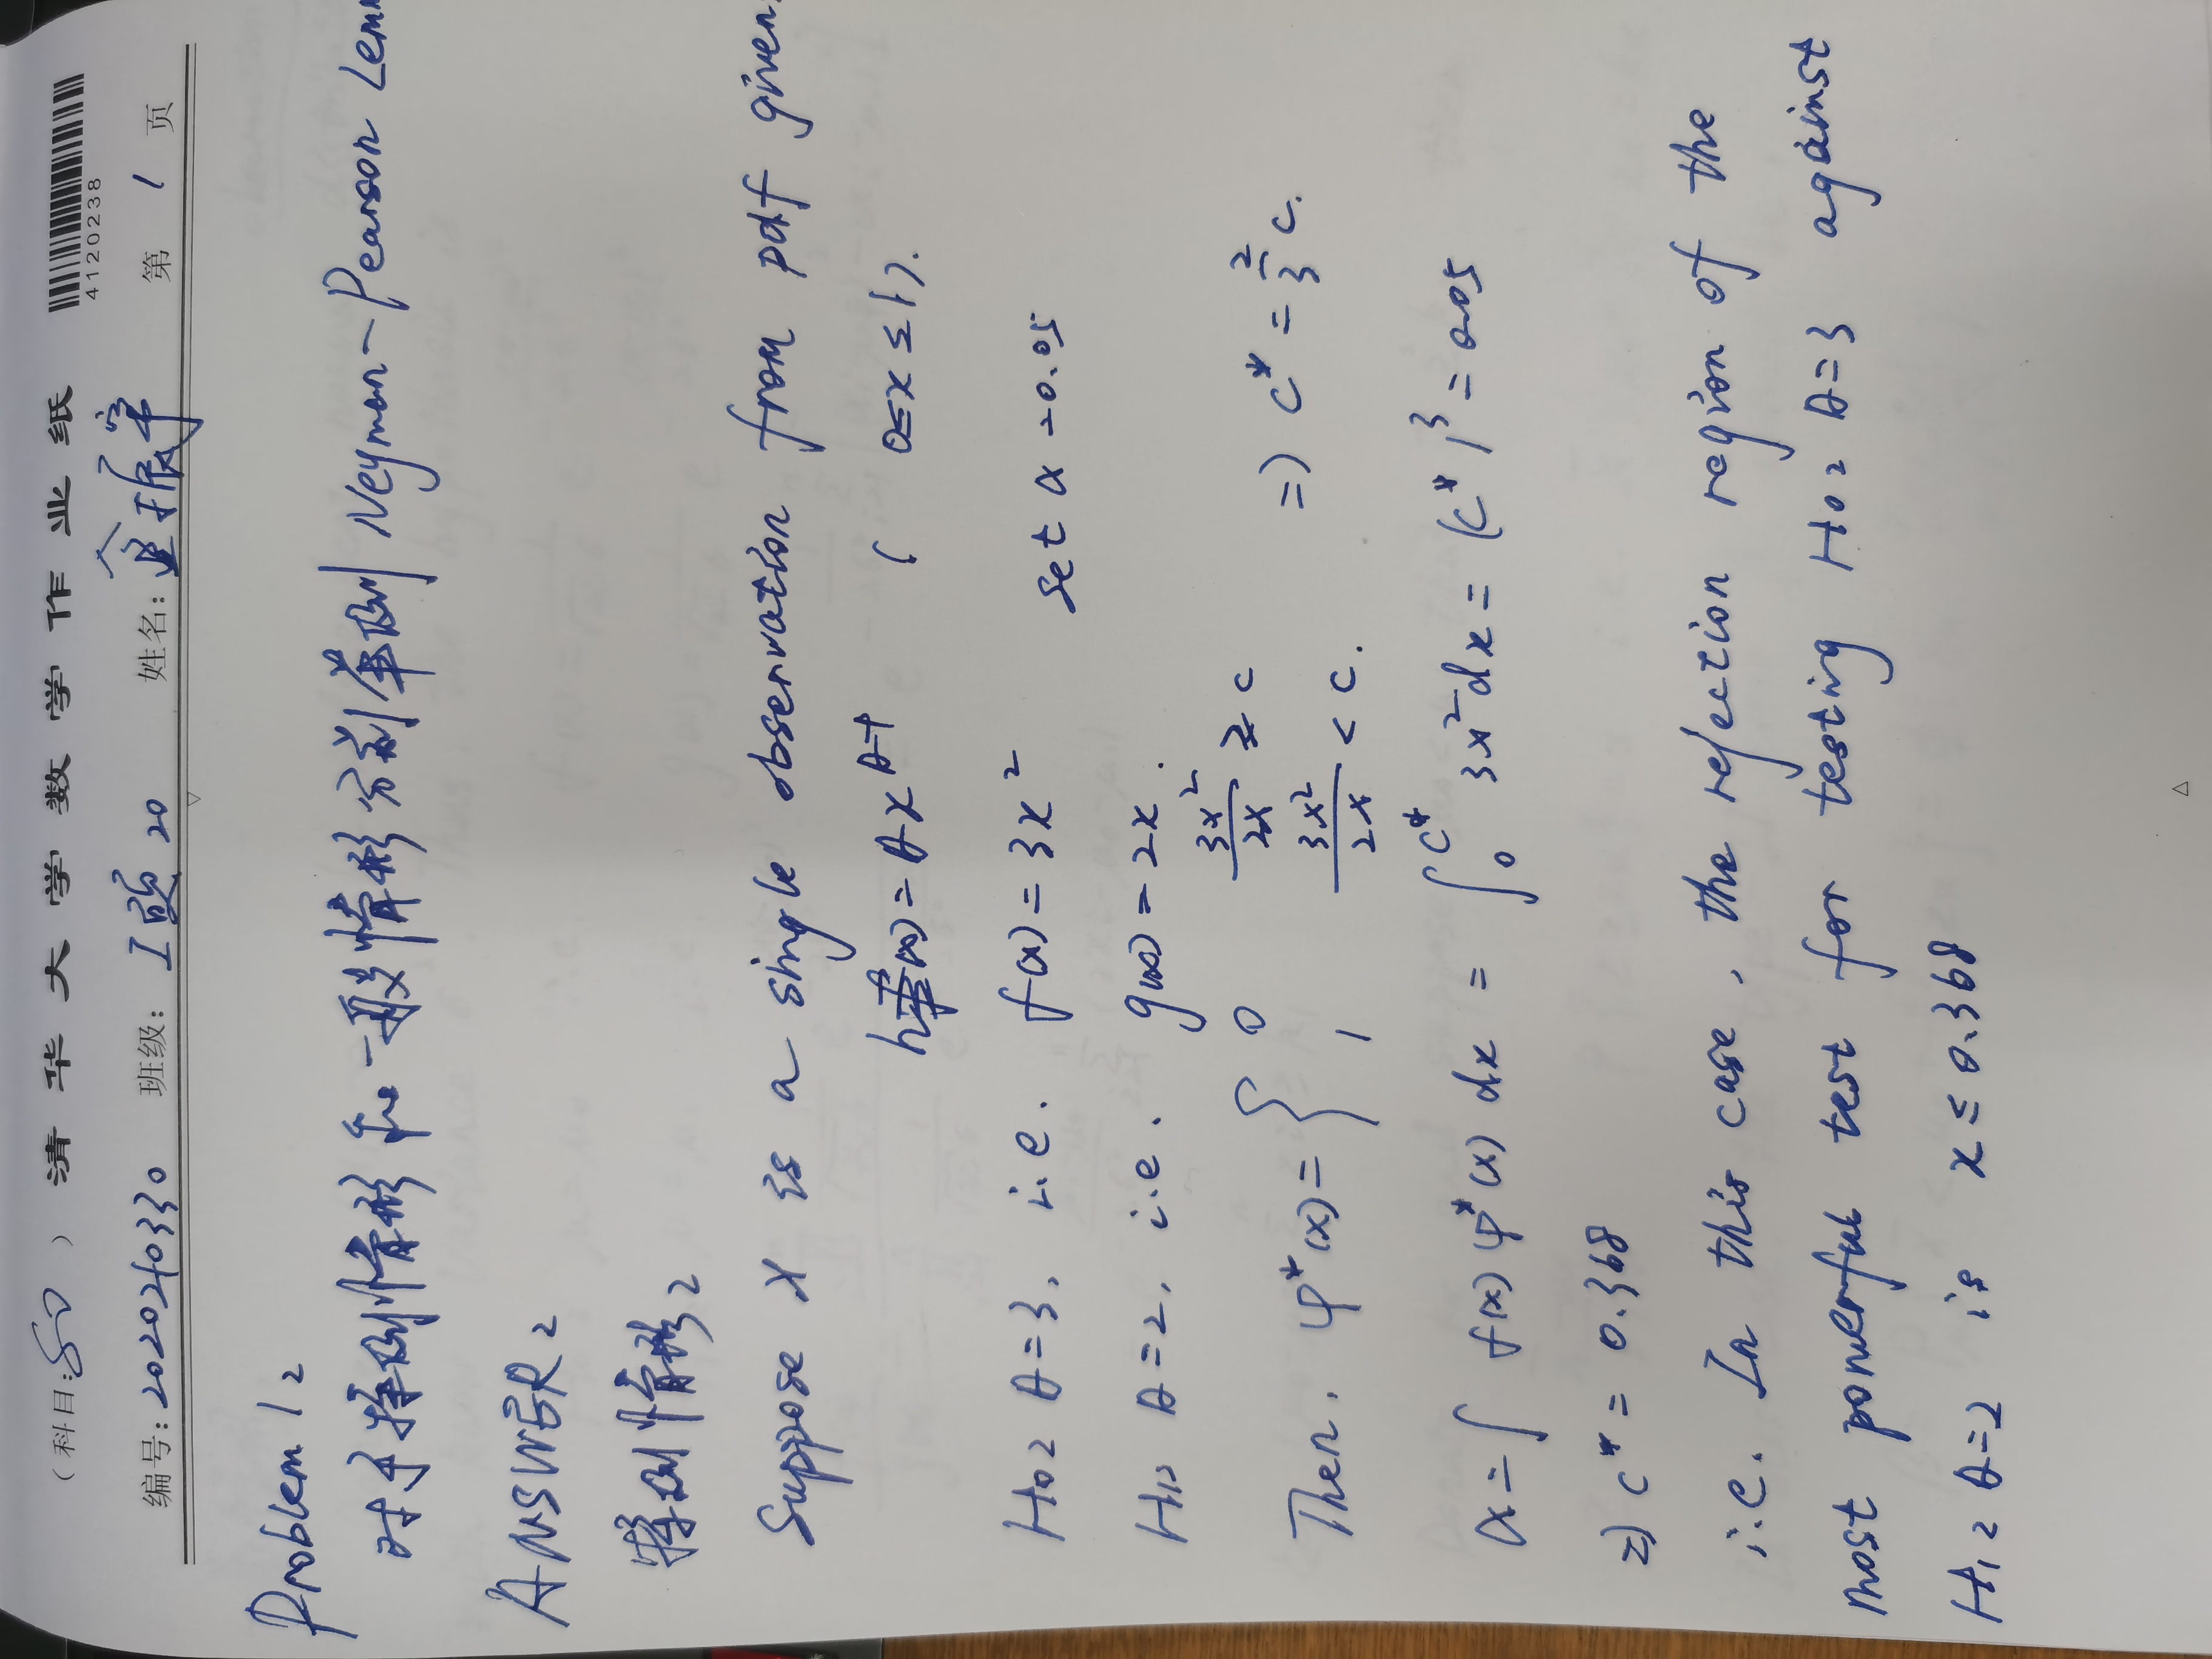 （科目：SD ） 清华大学数学作业纸
4120238
编号：2020210330 班级： 工硕20 姓名：金振宇 第 1 页
Problem 1：
对于特例情形和一般情形分别举例 Neyman-Pearson Lem
ANSWER：
特例情形：
Suppose X is a single observation from pdf given.
h(x) = θx^{θ-1} ( 0≤x≤1).
H0: θ=3, i.e. f(x) = 3x^2 set α = 0.05
H1: θ=2, i.e. g(x) = 2x.
Then, φ*(x) = { 0 3x^2/2x ≥ c ; 1 3x^2/2x < c. => c* = 2/3 c.
α = ∫ f(x) φ*(x) dx = ∫_0^{c*} 3x^2 dx = (c*)^3 = 0.05
=> c* = 0.368
i.e. In this case, the rejection region of the
most powerful test for testing H0: θ=3 against
H1: θ=2 is x ≤ 0.368